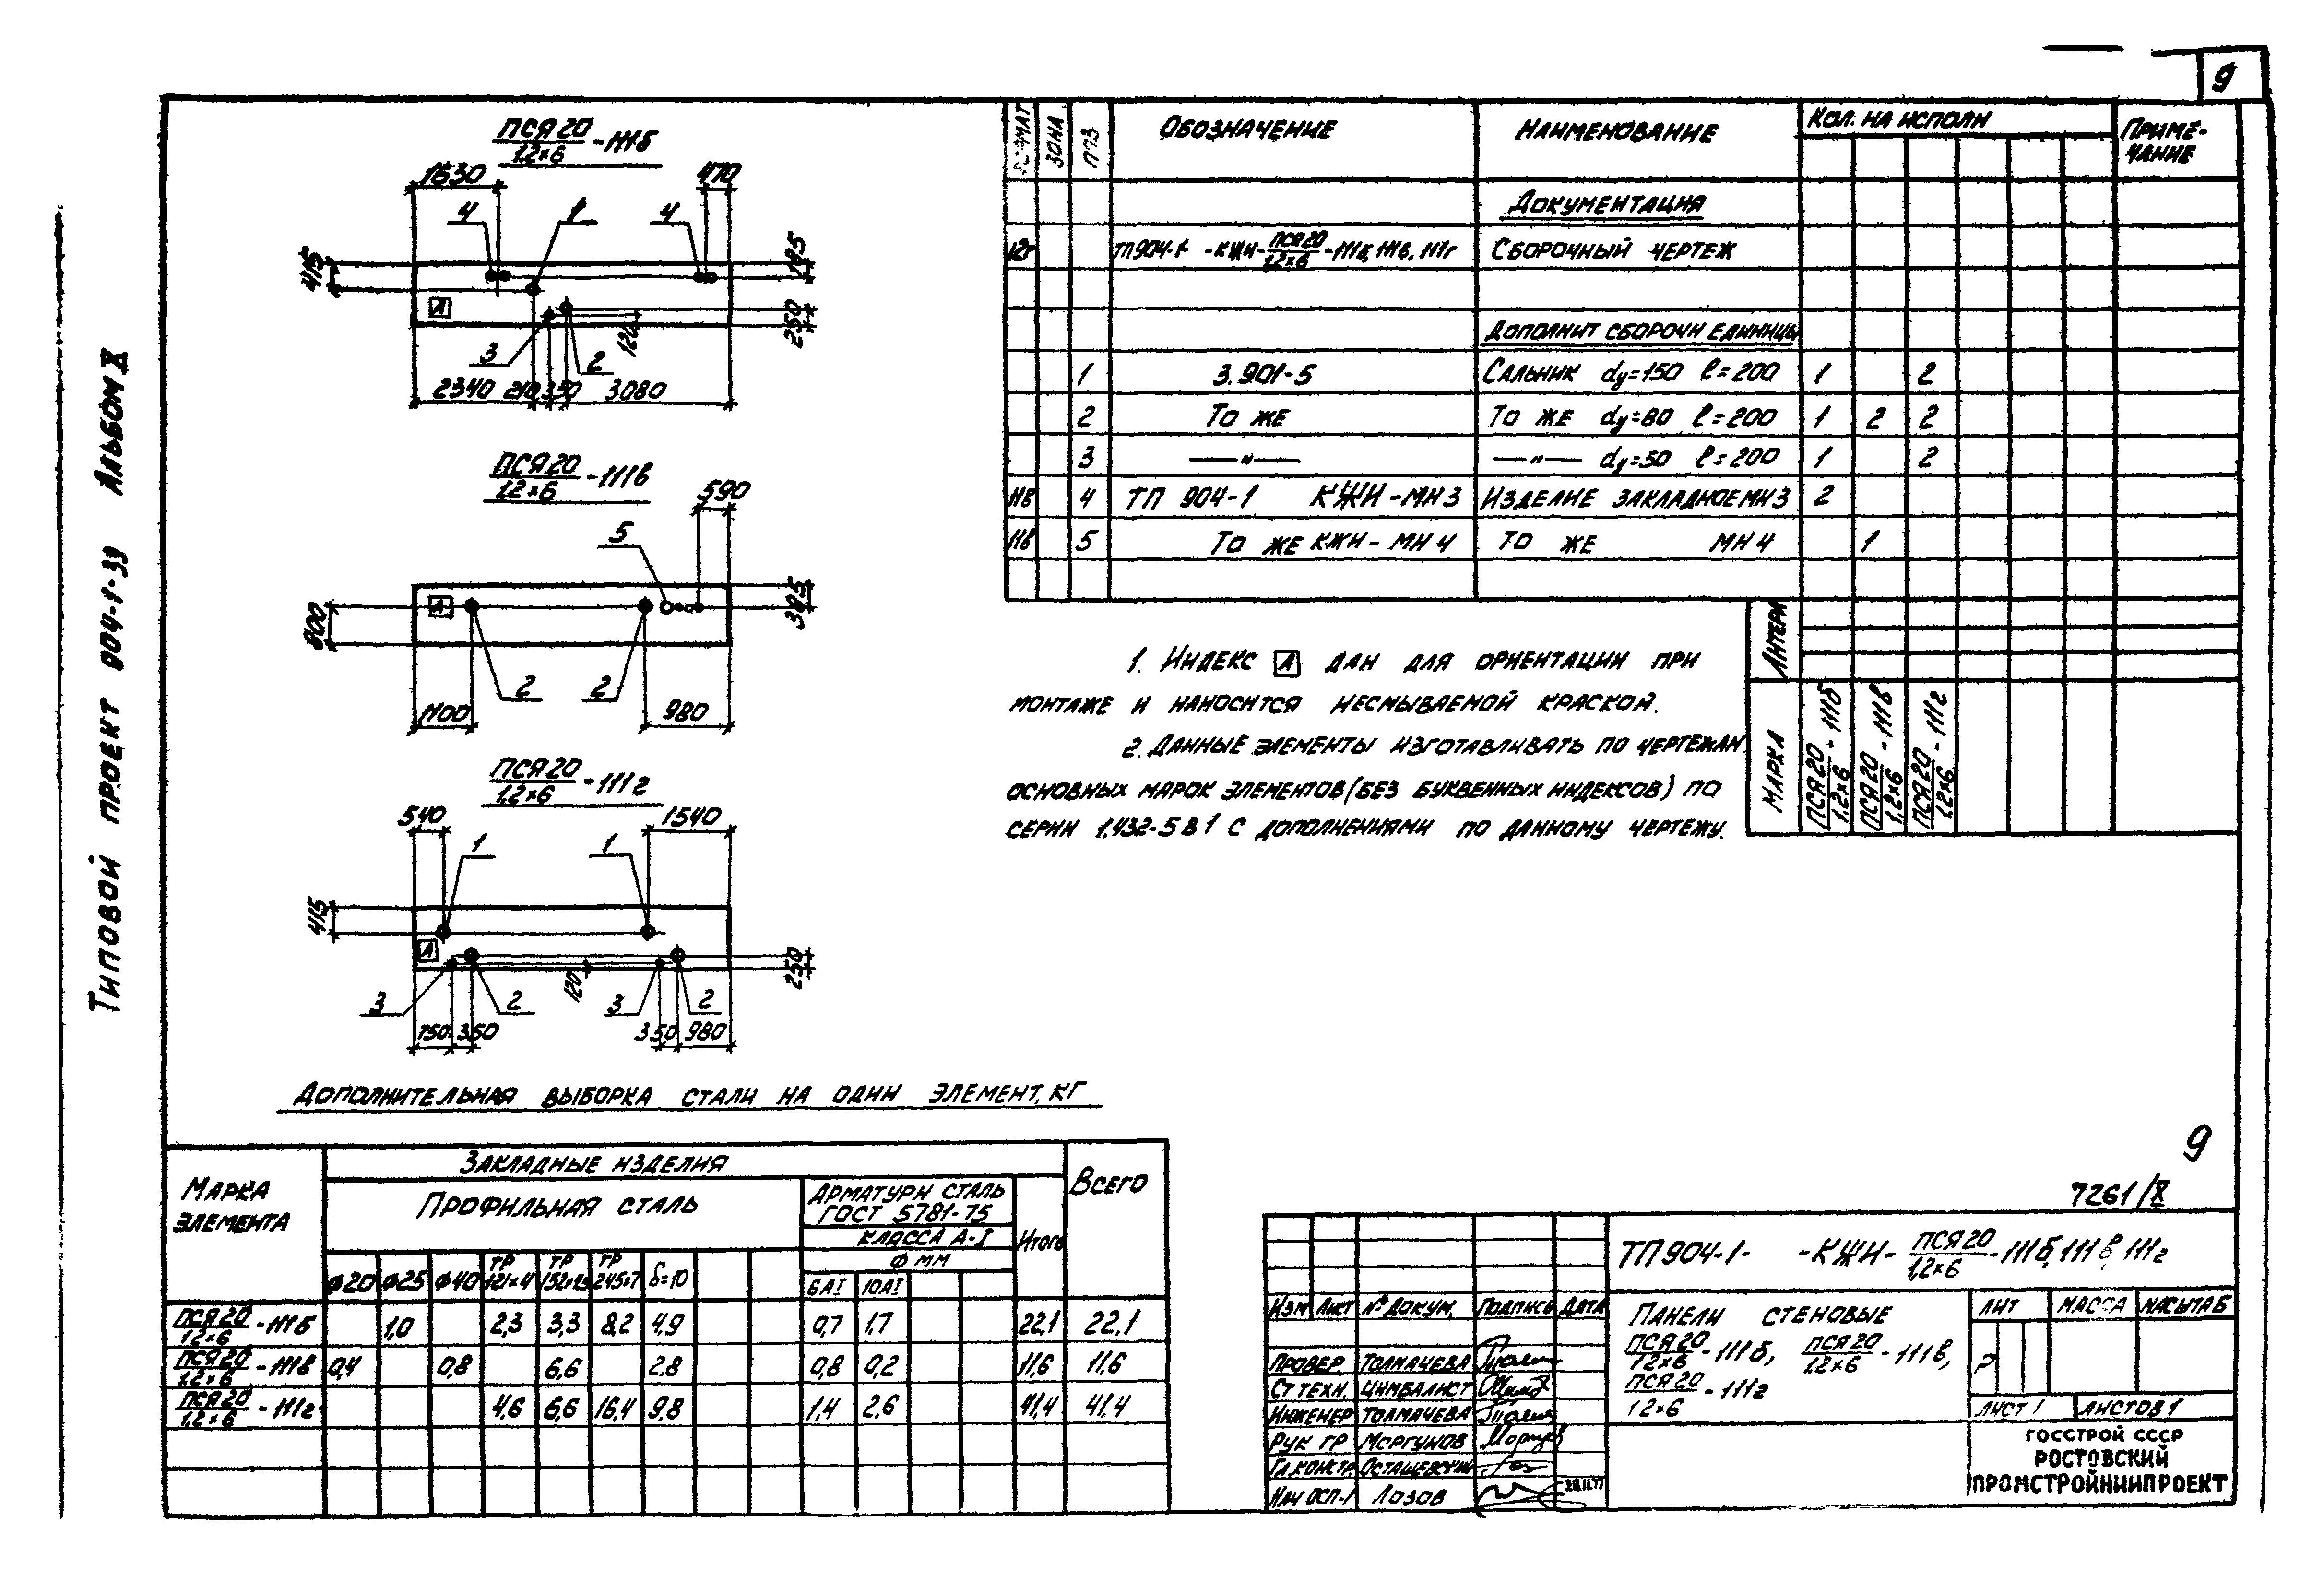 9
Типовой проект 904-1-39 Альбом X
ПСЯ20
1.2×6 -111б
1630
470
4
1
4
415
195
А
250
3
2
120
2340 210 350 3080
ПСЯ20
1.2×6 -111в
590
5
А
800
385
2
2
1100
980
ПСЯ20
1.2×6 -111г
540
1540
1
1
415
А
250
120
3
2
3
2
750 350
350 980
Формат
Зона
Поз
Обозначение
Наименование
Кол. на исполн
Приме-
чание
Документация
12г ТП904-1- -КЖИ- ПСЯ20/1.2×6 -111б, 111в, 111г Сборочный чертеж
Дополнит сборочн единицы
1 3.901-5 Сальник dу=150 ℓ=200 1 2
2 То же То же dу=80 ℓ=200 1 2 2
3 —"— —"— dу=50 ℓ=200 1 2
11в 4 ТП 904-1 КЖИ-МН3 Изделие закладное МН3 2
11в 5 То же КЖИ-МН4 То же МН4 1
Литера
Марка
ПСЯ20
1.2×6 -111б
ПСЯ20
1.2×6 -111в
ПСЯ20
1.2×6 -111г
1. Индекс А дан для ориентации при
монтаже и наносится несмываемой краской.
2. Данные элементы изготавливать по чертежам
основных марок элементов (без буквенных индексов) по
серии 1.432-5 В 1 с дополнениями по данному чертежу.
Дополнительная выборка стали на один элемент, кг
Марка
элемента
Закладные изделия
Всего
Профильная сталь
Арматурн сталь
ГОСТ 5781-75
класса А-I
Итого
ф мм
ф20 ф25 ф40 ТР 121×4 ТР 152×4.5 ТР 245×7 δ=10 6АI 10АI
ПСЯ20
1.2×6 -111б 1,0 2,3 3,3 8,2 4,9 0,7 1,7 22,1 22,1
ПСЯ20
1.2×6 -111в 0,4 0,8 6,6 2.8 0,8 0,2 11,6 11,6
ПСЯ20
1.2×6 -111г 4,6 6,6 16,4 9,8 1,4 2,6 41,4 41,4
9
7261/X
ТП904-1- -КЖИ- ПСЯ20/1,2×6 -111б, 111в, 111г
Изм Лист № докум. Подпись Дата
Провер. Толмачева
Ст техн. Цимбалист
Инженер Толмачева
Рук гр Моргунов
Гл.констр. Осташевский
Нач ОСП-1 Лозов 28.11.77
Панели стеновые
ПСЯ20
1.2×6 -111б, ПСЯ20
1.2×6 -111в,
ПСЯ20
1.2×6 -111г
Лит Масса Масштаб
Р
Лист 1 Листов 1
Госстрой СССР
Ростовский
Промстройниипроект